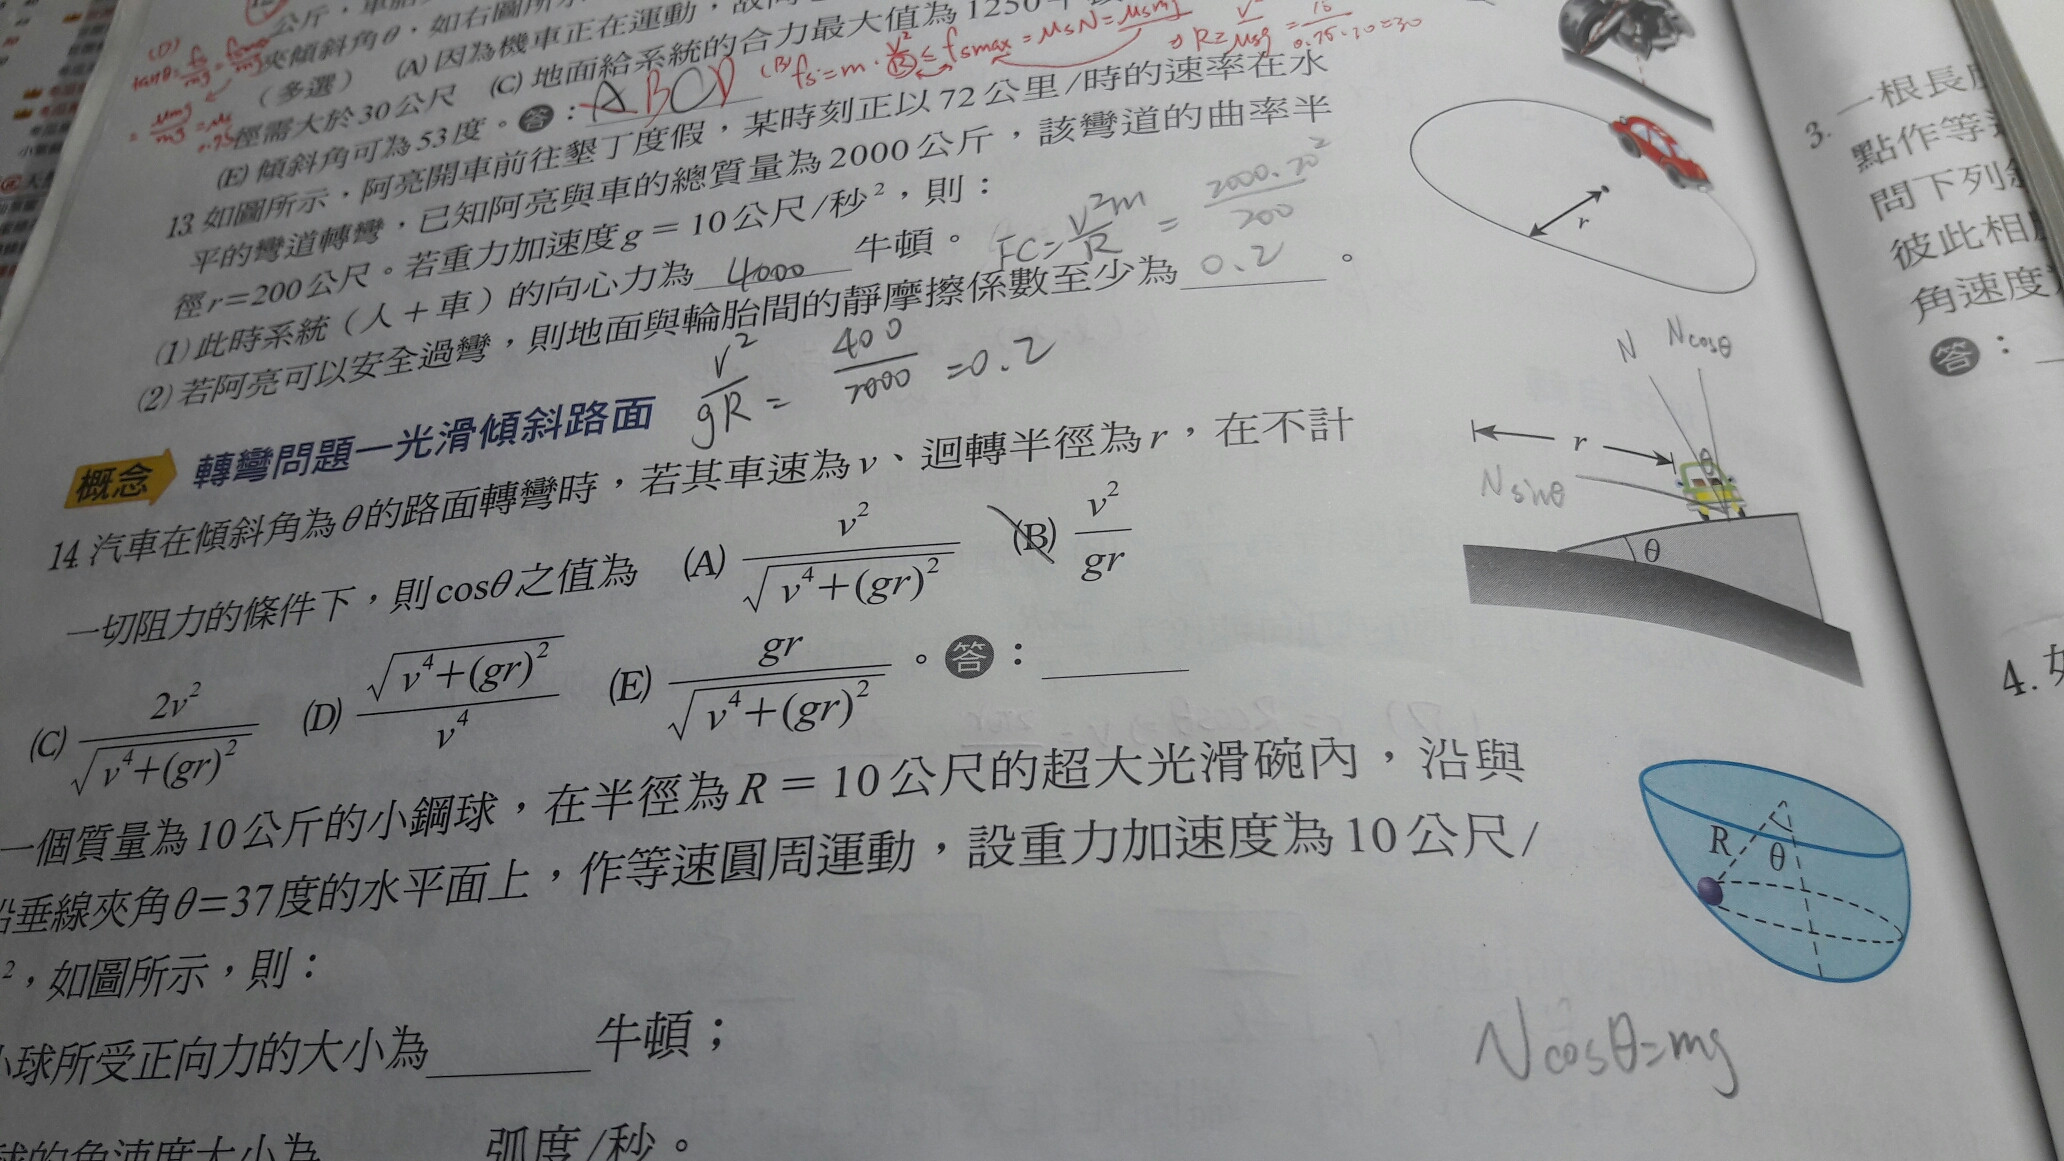 公斤,車
夾傾斜角θ,如右圖所示
(多選) (A)因為機車正在運動,故
徑需大於30公尺 (C)地面給系統的合力最大值為1250牛
(E)傾斜角可為53度。答:ABCD
(D)
tanθ=fs/mg=fsmax/mg
=μmg/mg=μs
0.75
(B) fs=m·v²/R≤fsmax=μsN=μsmg
⇒R≥v²/μsg=15²/0.75·10=30
13.如圖所示,阿亮開車前往墾丁度假,某時刻正以72公里/時的速率在水
平的彎道轉彎,已知阿亮與車的總質量為2000公斤,該彎道的曲率半
徑r=200公尺。若重力加速度g=10公尺/秒²,則:
(1)此時系統(人+車)的向心力為 4000 牛頓。
FC=v²m/R=2000·20²/200
(2)若阿亮可以安全過彎,則地面與輪胎間的靜摩擦係數至少為 0.2 。
v²/gR=400/2000=0.2
r
概念 轉彎問題—光滑傾斜路面
14.汽車在傾斜角為θ的路面轉彎時,若其車速為v、迴轉半徑為r,在不計
一切阻力的條件下,則cosθ之值為 (A) v²/√(v⁴+(gr)²) (B) v²/gr
(C) 2v²/√(v⁴+(gr)²) (D) √(v⁴+(gr)²)/v⁴ (E) gr/√(v⁴+(gr)²) 。答:
N
Ncosθ
r
θ
Nsinθ
θ
一個質量為10公斤的小鋼球,在半徑為R=10公尺的超大光滑碗內,沿與
鉛垂線夾角θ=37度的水平面上,作等速圓周運動,設重力加速度為10公尺/
²,如圖所示,則:
小球所受正向力的大小為 牛頓;
球的角速度大小為 弧度/秒。
R
θ
Ncosθ=mg
3.一根長
點作等
問下列
彼此相
角速度
答:
4.如